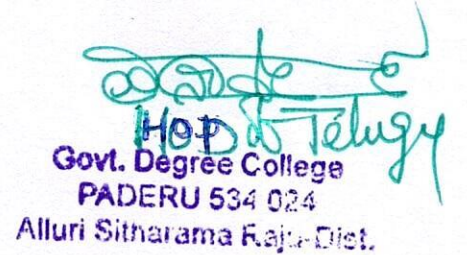 HOD Telugu
Govt. Degree College
PADERU 534 024
Alluri Sitharama Raju-Dist.